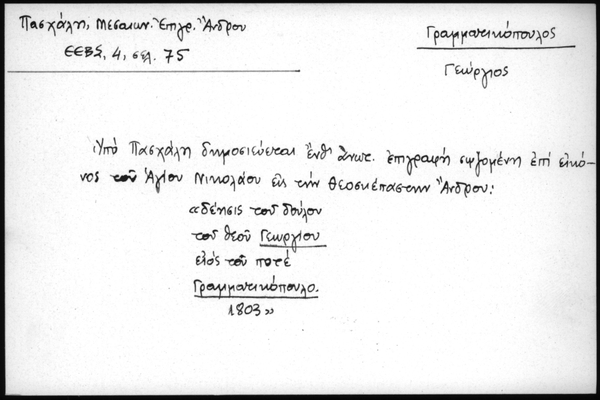 Πασχάλη, Μεσαιων. Ἐπιγρ. Ἄνδρου
ΕΕΒΣ, 4, σελ. 75
Γραμματικόπουλος
Γεώργιος
Ὑπό Πασχάλη δημοσιεύεται ἔνθ' ἀνωτ. ἐπιγραφή σῳζομένη ἐπί εἰκό-
νος τοῦ Ἁγίου Νικολάου εἰς τήν Θεοσκέπαστην Ἄνδρου:
«δέησις τοῦ δούλου
τοῦ θεοῦ Γεωργίου
ειὸς τοῦ ποτέ
Γραμματικόπουλο.
1803»